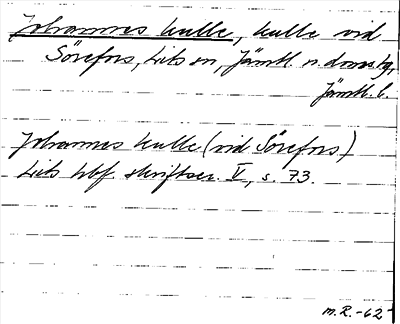 Johannes kulle, kulle vid
Sörefors, Lits sn, Jämtl. n. doms.g,
Jämtl. l.
Johannes kulle (vid Sörefors)
Lits hbf. skriftser. V, s. 73.
M.R. -62